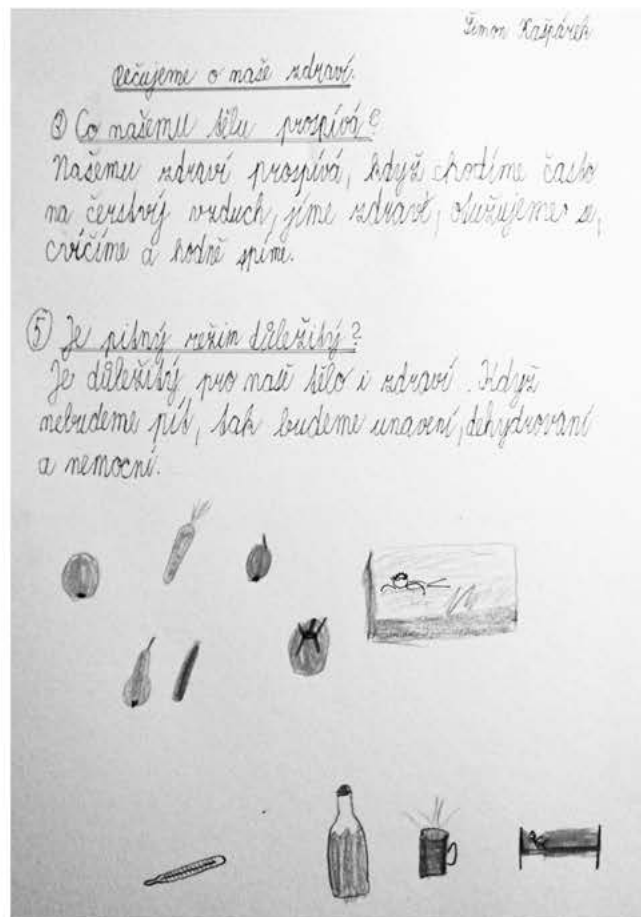 Šimon Kašpárek
Pečujeme o naše zdraví.
③ Co našemu tělu prospívá?
Našemu zdraví prospívá, když chodíme často
na čerstvý vzduch, jíme zdravě, otužujeme se,
cvičíme a hodně spíme.
⑤ Je pitný režim důležitý?
Je důležitý pro naše tělo i zdraví. Když
nebudeme pít, tak budeme unavení, dehydrovaní
a nemocní.